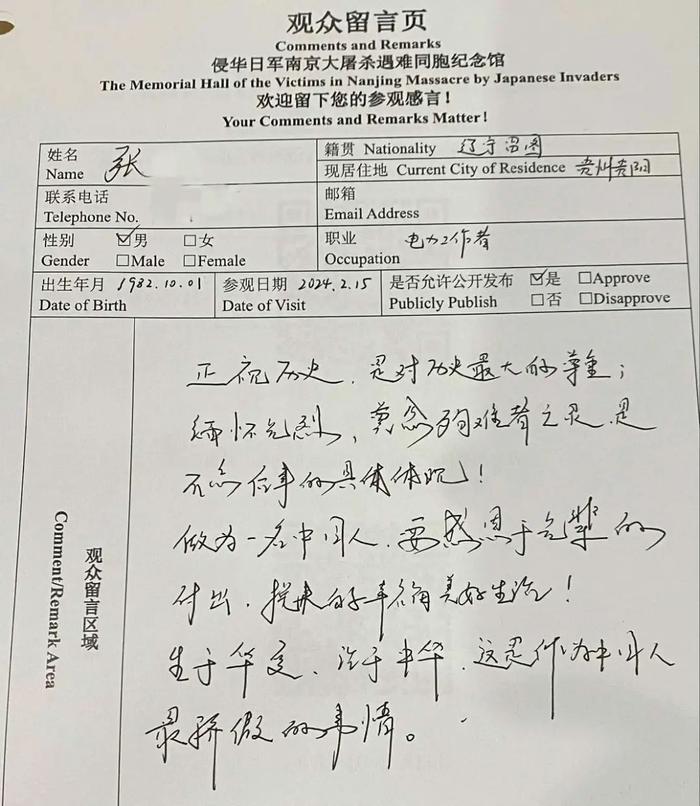 观众留言页
Comments and Remarks
侵华日军南京大屠杀遇难同胞纪念馆
The Memorial Hall of the Victims in Nanjing Massacre by Japanese Invaders
欢迎留下您的参观感言！
Your Comments and Remarks Matter！
姓名 张
Name
籍贯 Nationality 辽宁昌图
现居住地 Current City of Residence 贵州贵阳
联系电话
Telephone No.
邮箱
Email Address
性别 ☑男 □女
Gender □Male □Female
职业 电力工作者
Occupation
出生年月 1982.10.01
Date of Birth
参观日期 2024.2.15
Date of Visit
是否允许公开发布 ☑是 □Approve
Publicly Publish □否 □Disapprove
观众留言区域
Comment/Remark Area
正视历史，是对历史最大的尊重；
缅怀先烈，奠念殉难者之灵，是
不忘往事的具体体现！
做为一名中国人，要感恩于先辈的
付出，换来的幸福美好生活！
生于华夏，活于中华，这是作为中国人
最骄傲的事情。